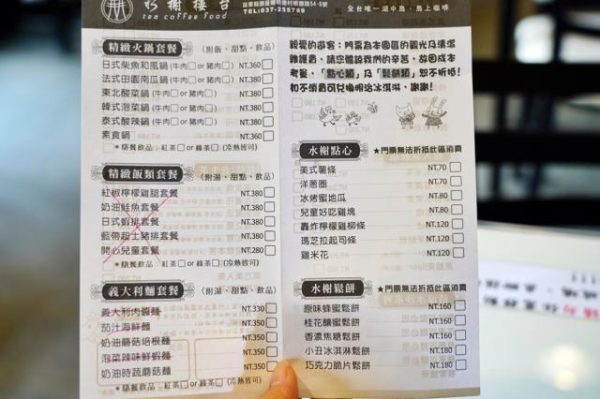 水榭樓台
tea coffee food
TEL:037-255780
全台唯一湖中島．馬上咖啡
精緻火鍋套餐 (附飯、甜點、飲品)
日式柴魚和風鍋(牛肉□ or 豬肉□) NT.360□
法式田園南瓜鍋(牛肉□ or 豬肉□) NT.380□
東北酸菜鍋 (牛肉□ or 豬肉□) NT.380□
韓式泡菜鍋 (牛肉□ or 豬肉□) NT.380□
泰式酸辣鍋 (牛肉□ or 豬肉□) NT.380□
素食鍋 NT.360□
*隨餐飲品：紅茶□ or 綠茶□ (冷熱皆可)
精緻飯類套餐 (附湯、甜點、飲品)
紅椒檸檬雞腿套餐 NT.380□
奶油鮭魚套餐 NT.380□
日式蝦排套餐 NT.380□
藍帶起士豬排套餐 NT.380□
開心兒童套餐 NT.280□
*隨餐飲品：紅茶□ or 綠茶□ (冷熱皆可)
義大利麵套餐 (附湯、甜點、飲品)
義大利肉醬麵 NT.330□
茄汁海鮮麵 NT.350□
奶油蘑菇培根麵 NT.350□
泡菜辣味鮮蝦麵 NT.350□
奶油時蔬蘑菇麵 NT.350□
*隨餐飲品：紅茶□ or 綠茶□ (冷熱皆可)
親愛的遊客：門票為本園區的觀光及清潔
維護費，請您體諒我們的辛苦。故因成本
考量，「點心類」及「鬆餅類」恕不折抵！
如不消費可兌換明治冰淇淋，謝謝！
水榭點心 ★門票無法折抵此區消費
美式薯條 NT.70□
洋蔥圈 NT.70□
冰烤蜜地瓜 NT.80□
兒童好吃雞塊 NT.80□
轟炸檸檬雞柳條 NT.120□
瑪芝拉起司條 NT.120□
雞米花 NT.120□
水榭鬆餅 ★門票無法折抵此區消費
原味蜂蜜鬆餅 NT.160□
桂花釀蜜鬆餅 NT.160□
香濃焦糖鬆餅 NT.160□
小丑冰淇淋鬆餅 NT.180□
巧克力脆片鬆餅 NT.180□